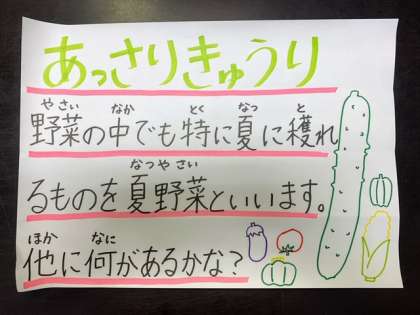 あっさりきゅうり
やさい なか とく なつ と
野菜の中でも特に夏に穫れ
なつやさい
るものを夏野菜といいます。
ほか なに
他に何があるかな?